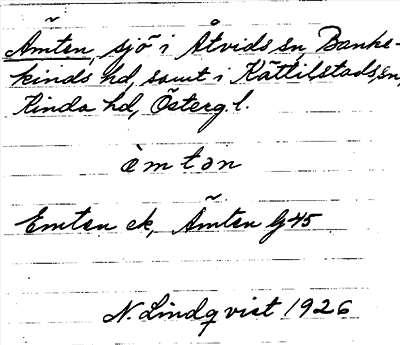 Ämten, sjö i Åtvids sn Banke-
kinds hd, samt i Kättilstads sn,
Kinda hd, Östergl.
èmtən
Emten ek, Ämten G45
N. Lindqvist 1926